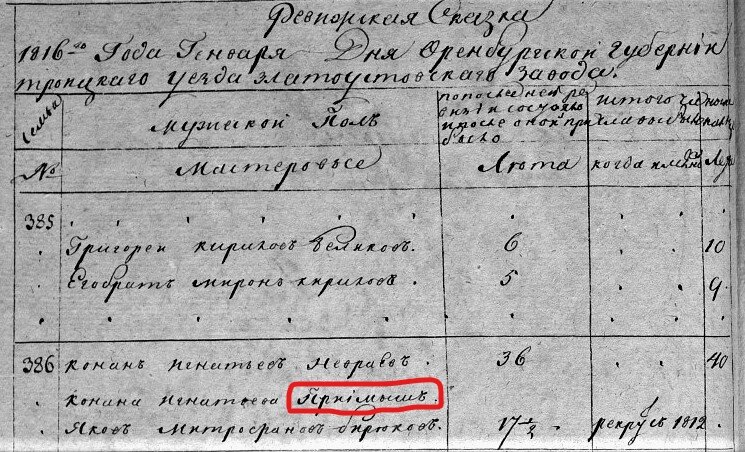 Ревизская Сказка
1816го Года Генваря Дня Оренбургской Губернии
троицкого уезда златоустовскаго завода.
семьи
Мужеской Полъ
попоследней ре
визии состояло
и после оной при
было
изтого числа
выбыло
№
Мастеровые
Лета
когда имянно
Лета
385
Григореи кириковъ великовъ. 6 10
Егобратъ миронъ кириковъ 5 9
386 конанъ игнатьевъ 36 40
конана игнатьева Пріимышъ.
Яковъ Митрофановъ бирюковъ. 17½ рекрутъ 1812